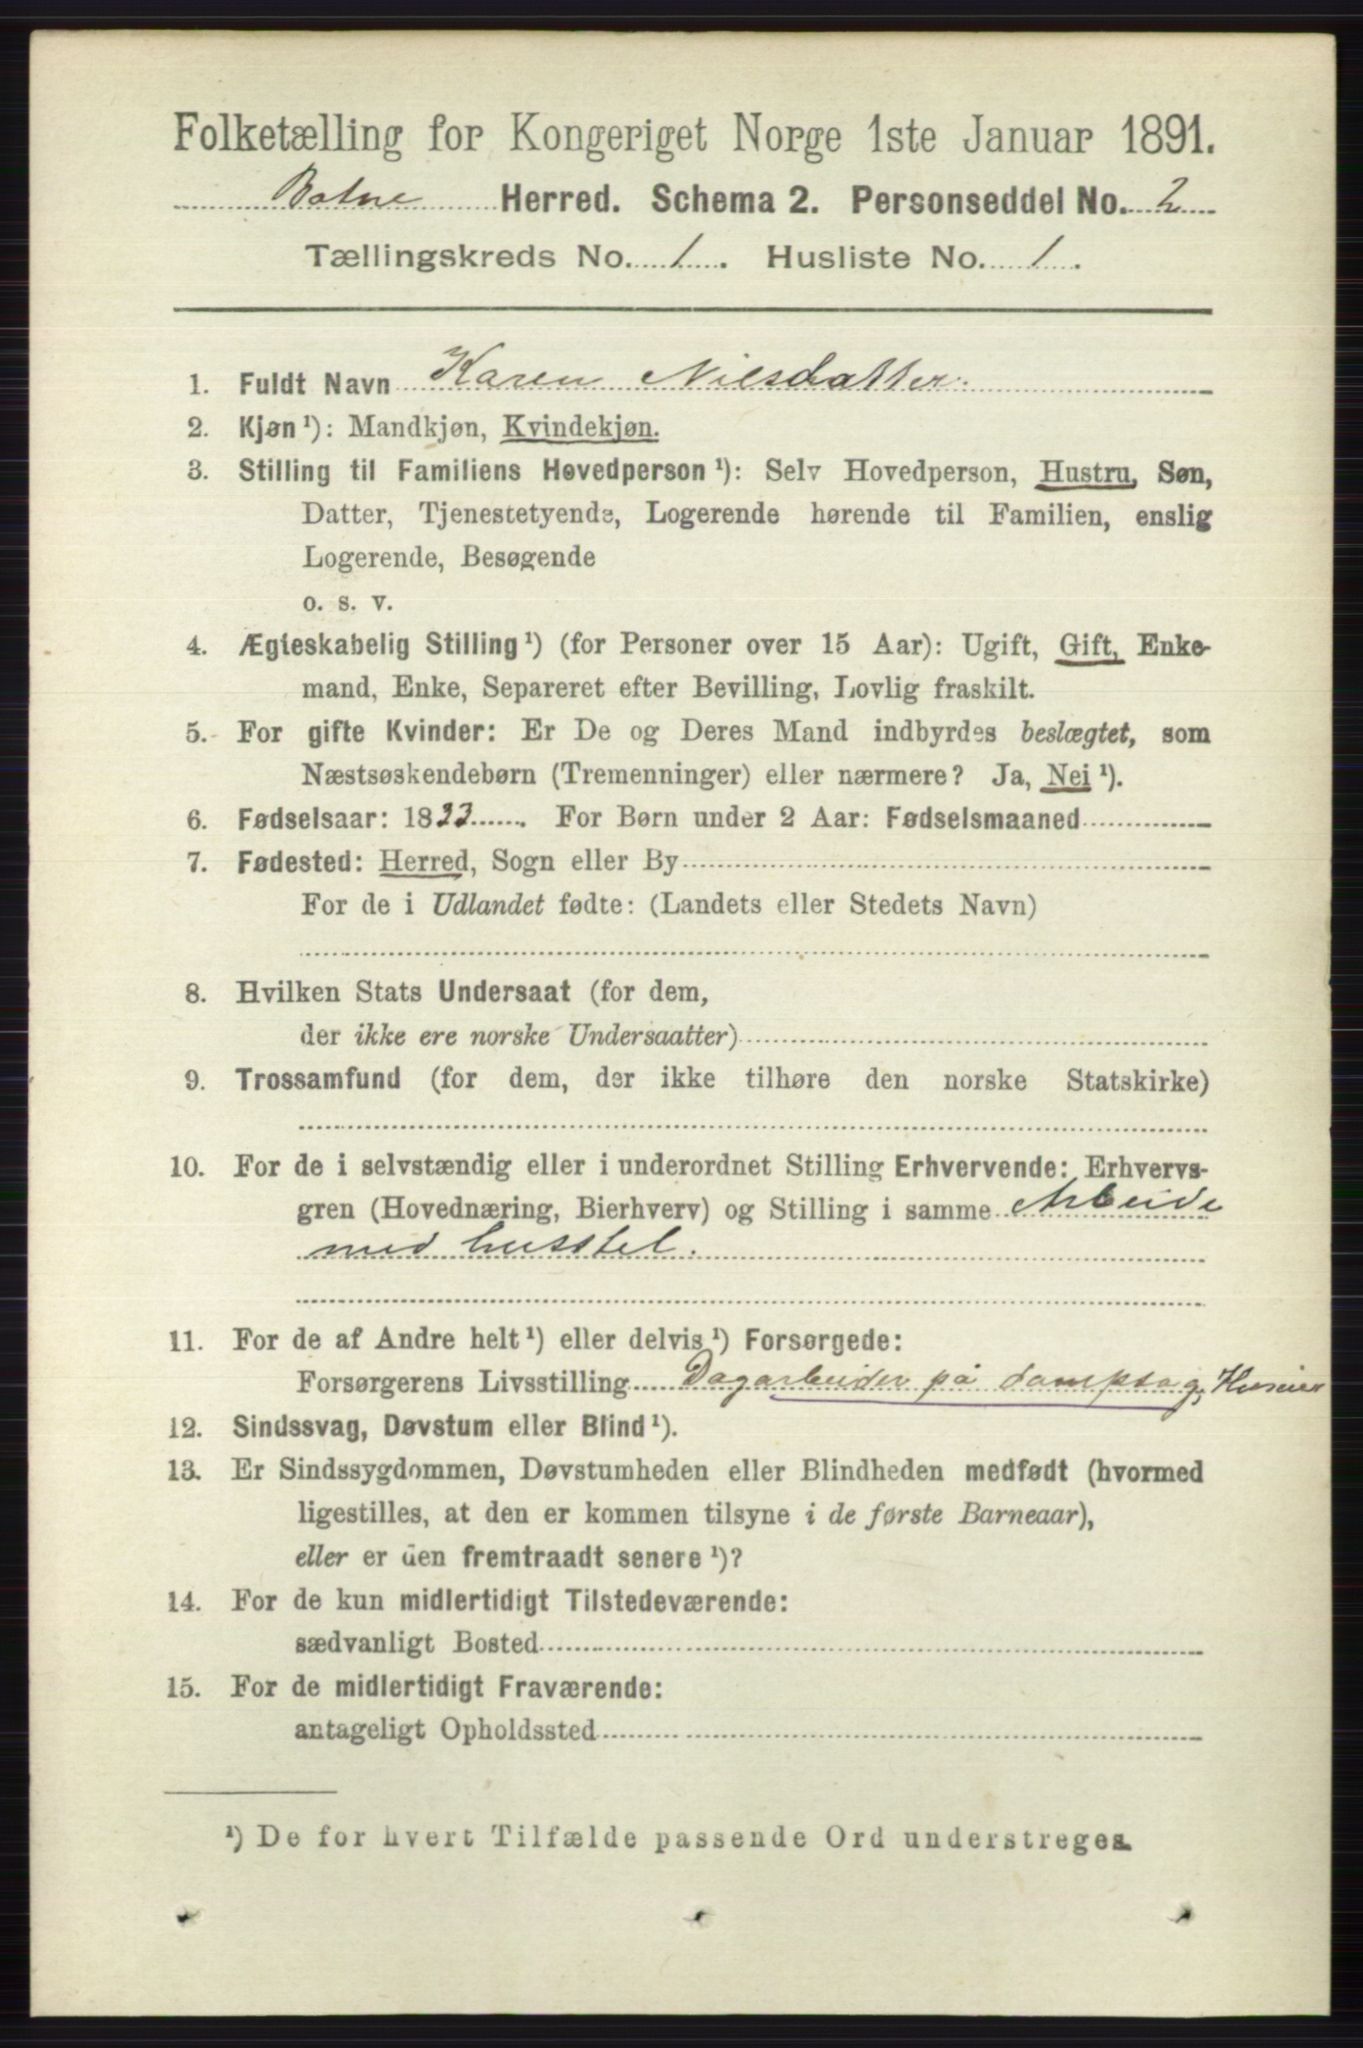 Folketælling for Kongeriget Norge 1ste Januar 1891.
Botne Herred. Schema 2. Personseddel No. 2
Tællingskreds No. 1. Husliste No. 1.
1. Fuldt Navn Karen Nilsdatter.
2. Kjøn ¹): Mandkjøn, Kvindekjøn.
3. Stilling til Familiens Hovedperson ¹): Selv Hovedperson, Hustru, Søn,
Datter, Tjenestetyende, Logerende hørende til Familien, enslig
Logerende, Besøgende
o. s. v.
4. Ægteskabelig Stilling ¹) (for Personer over 15 Aar): Ugift, Gift, Enke-
mand, Enke, Separeret efter Bevilling, Lovlig fraskilt.
5. For gifte Kvinder: Er De og Deres Mand indbyrdes beslægtet, som
Næstsøskendebørn (Tremenninger) eller nærmere? Ja, Nei ¹).
6. Fødselsaar: 1833. For Børn under 2 Aar: Fødselsmaaned
7. Fødested: Herred, Sogn eller By
For de i Udlandet fødte: (Landets eller Stedets Navn)
8. Hvilken Stats Undersaat (for dem,
der ikke ere norske Undersaatter)
9. Trossamfund (for dem, der ikke tilhøre den norske Statskirke)
10. For de i selvstændig eller i underordnet Stilling Erhvervende: Erhvervs-
gren (Hovednæring, Bierhverv) og Stilling i samme Arbeide
med husstel.
11. For de af Andre helt ¹) eller delvis ¹) Forsørgede:
Forsørgerens Livsstilling Dagarbeider på dampsag, Huseier
12. Sindssvag, Døvstum eller Blind ¹).
13. Er Sindssygdommen, Døvstumheden eller Blindheden medfødt (hvormed
ligestilles, at den er kommen tilsyne i de første Barneaar),
eller er den fremtraadt senere ¹)?
14. For de kun midlertidigt Tilstedeværende:
sædvanligt Bosted
15. For de midlertidigt Fraværende:
antageligt Opholdssted
¹) De for hvert Tilfælde passende Ord understreges.